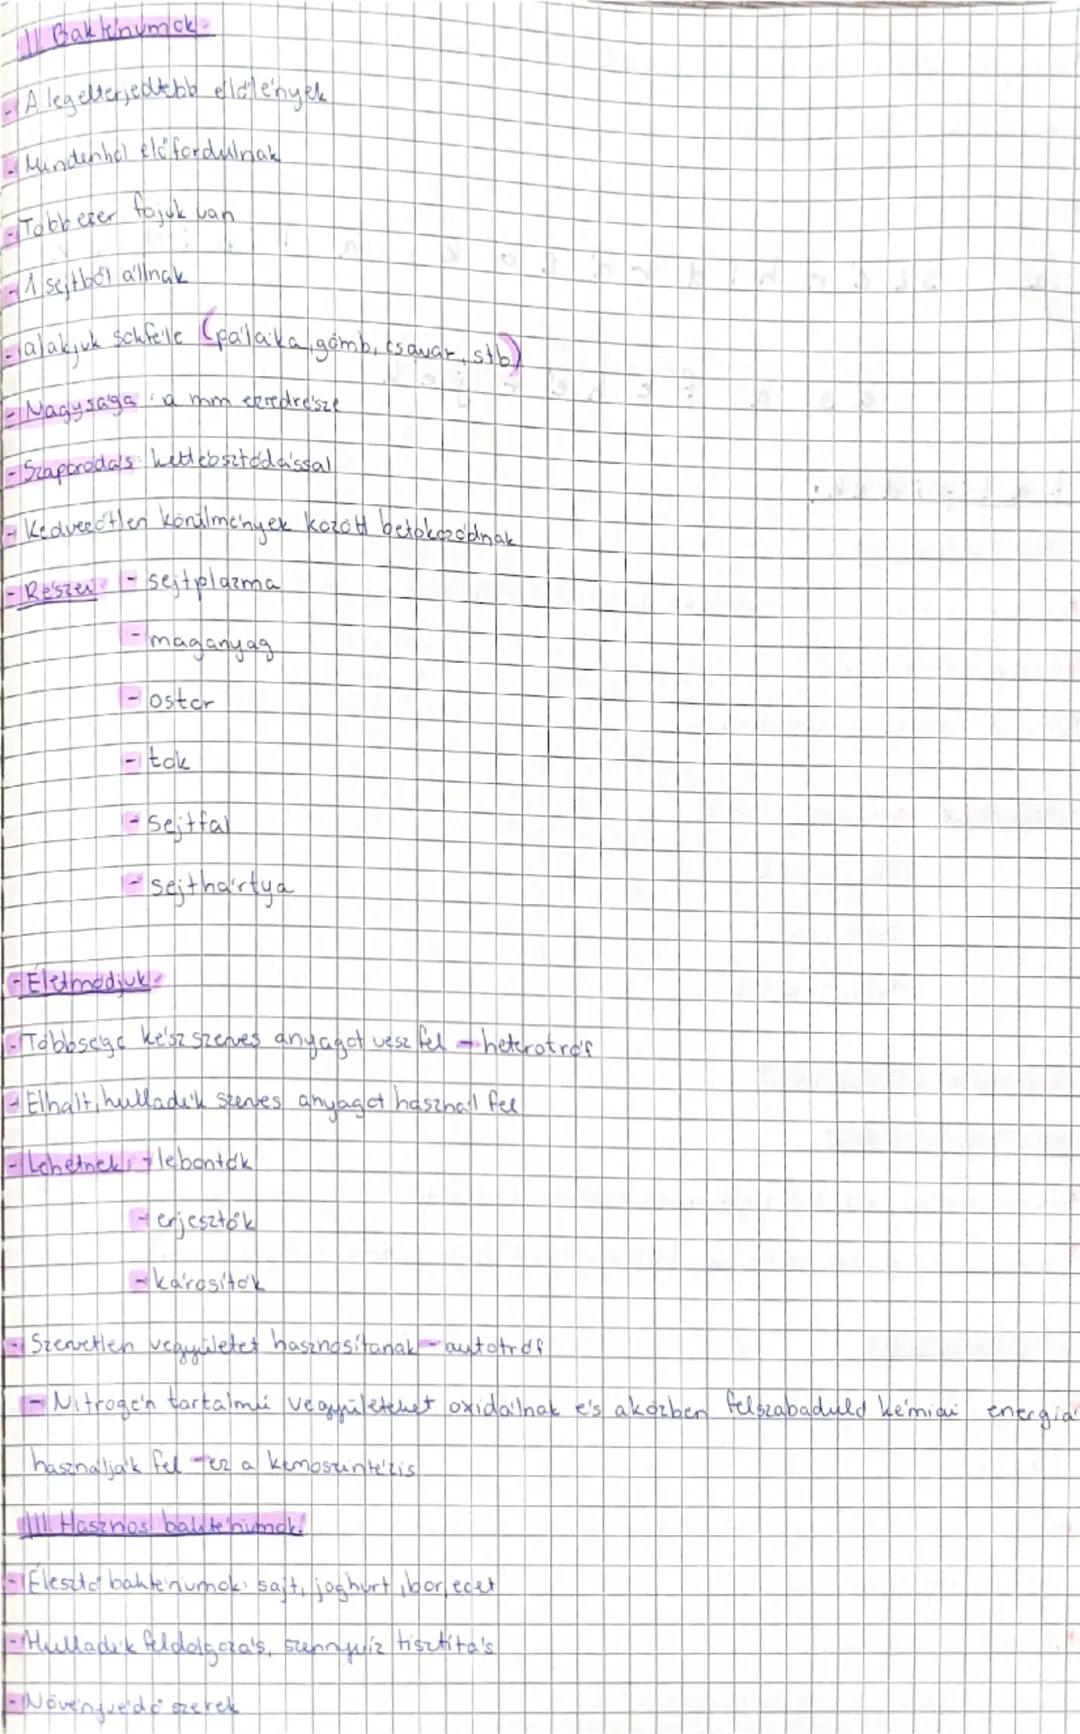 II. Baktériumok:
- A legelterjedtebb élőlények
- Mindenhol előfordulnak
- Több ezer fajuk van
- 1 sejtből állnak
- alakjuk sokféle (pálcika, gömb, csavar, stb)
- Nagysága: a mm ezredrésze
- Szaporodás: kettéosztódással
- Kedvezőtlen körülmények között betokozódnak
- Részei: - sejtplazma
- maganyag
- ostor
- tok
- sejtfal
- sejthártya
- Életmódjuk:
- Többsége kész szerves anyagot vesz fel - heterotróf
- Elhalt, hulladék szerves anyagot használ fel
- Lehetnek: - lebontók
- erjesztők
- károsítók
- Szervetlen vegyületet hasznosítanak - autotróf
- Nitrogén tartalmú vegyületeket oxidálnak és aközben felszabaduló kémiai energiá
használják fel - ez a kemoszintézis
III. Hasznos baktériumok:
- Élesztő baktériumok: sajt, joghurt, bor, ecet
- Hulladék feldolgozás, szennyvíz tisztítás
- Növényvédő szerek